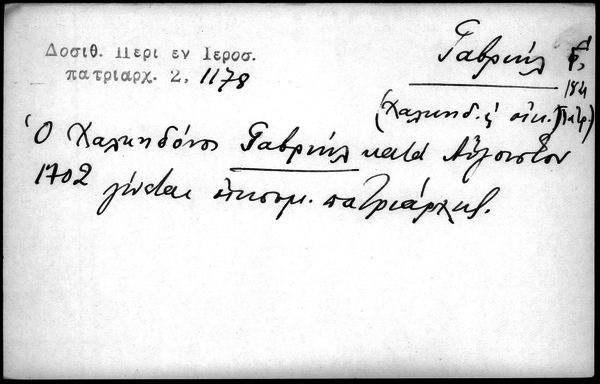 Δοσιθ. Περι εν Ιεροσ.
πατριαρχ. 2, 1178
Γαβριήλ Γ΄,
(Χαλκηδ. & οἰκ. Πατρ.)
Ὁ Χαλκηδόνος Γαβριήλ κατά Αὔγουστον
1702 γίνεται οἰκουμ. πατριάρχης.